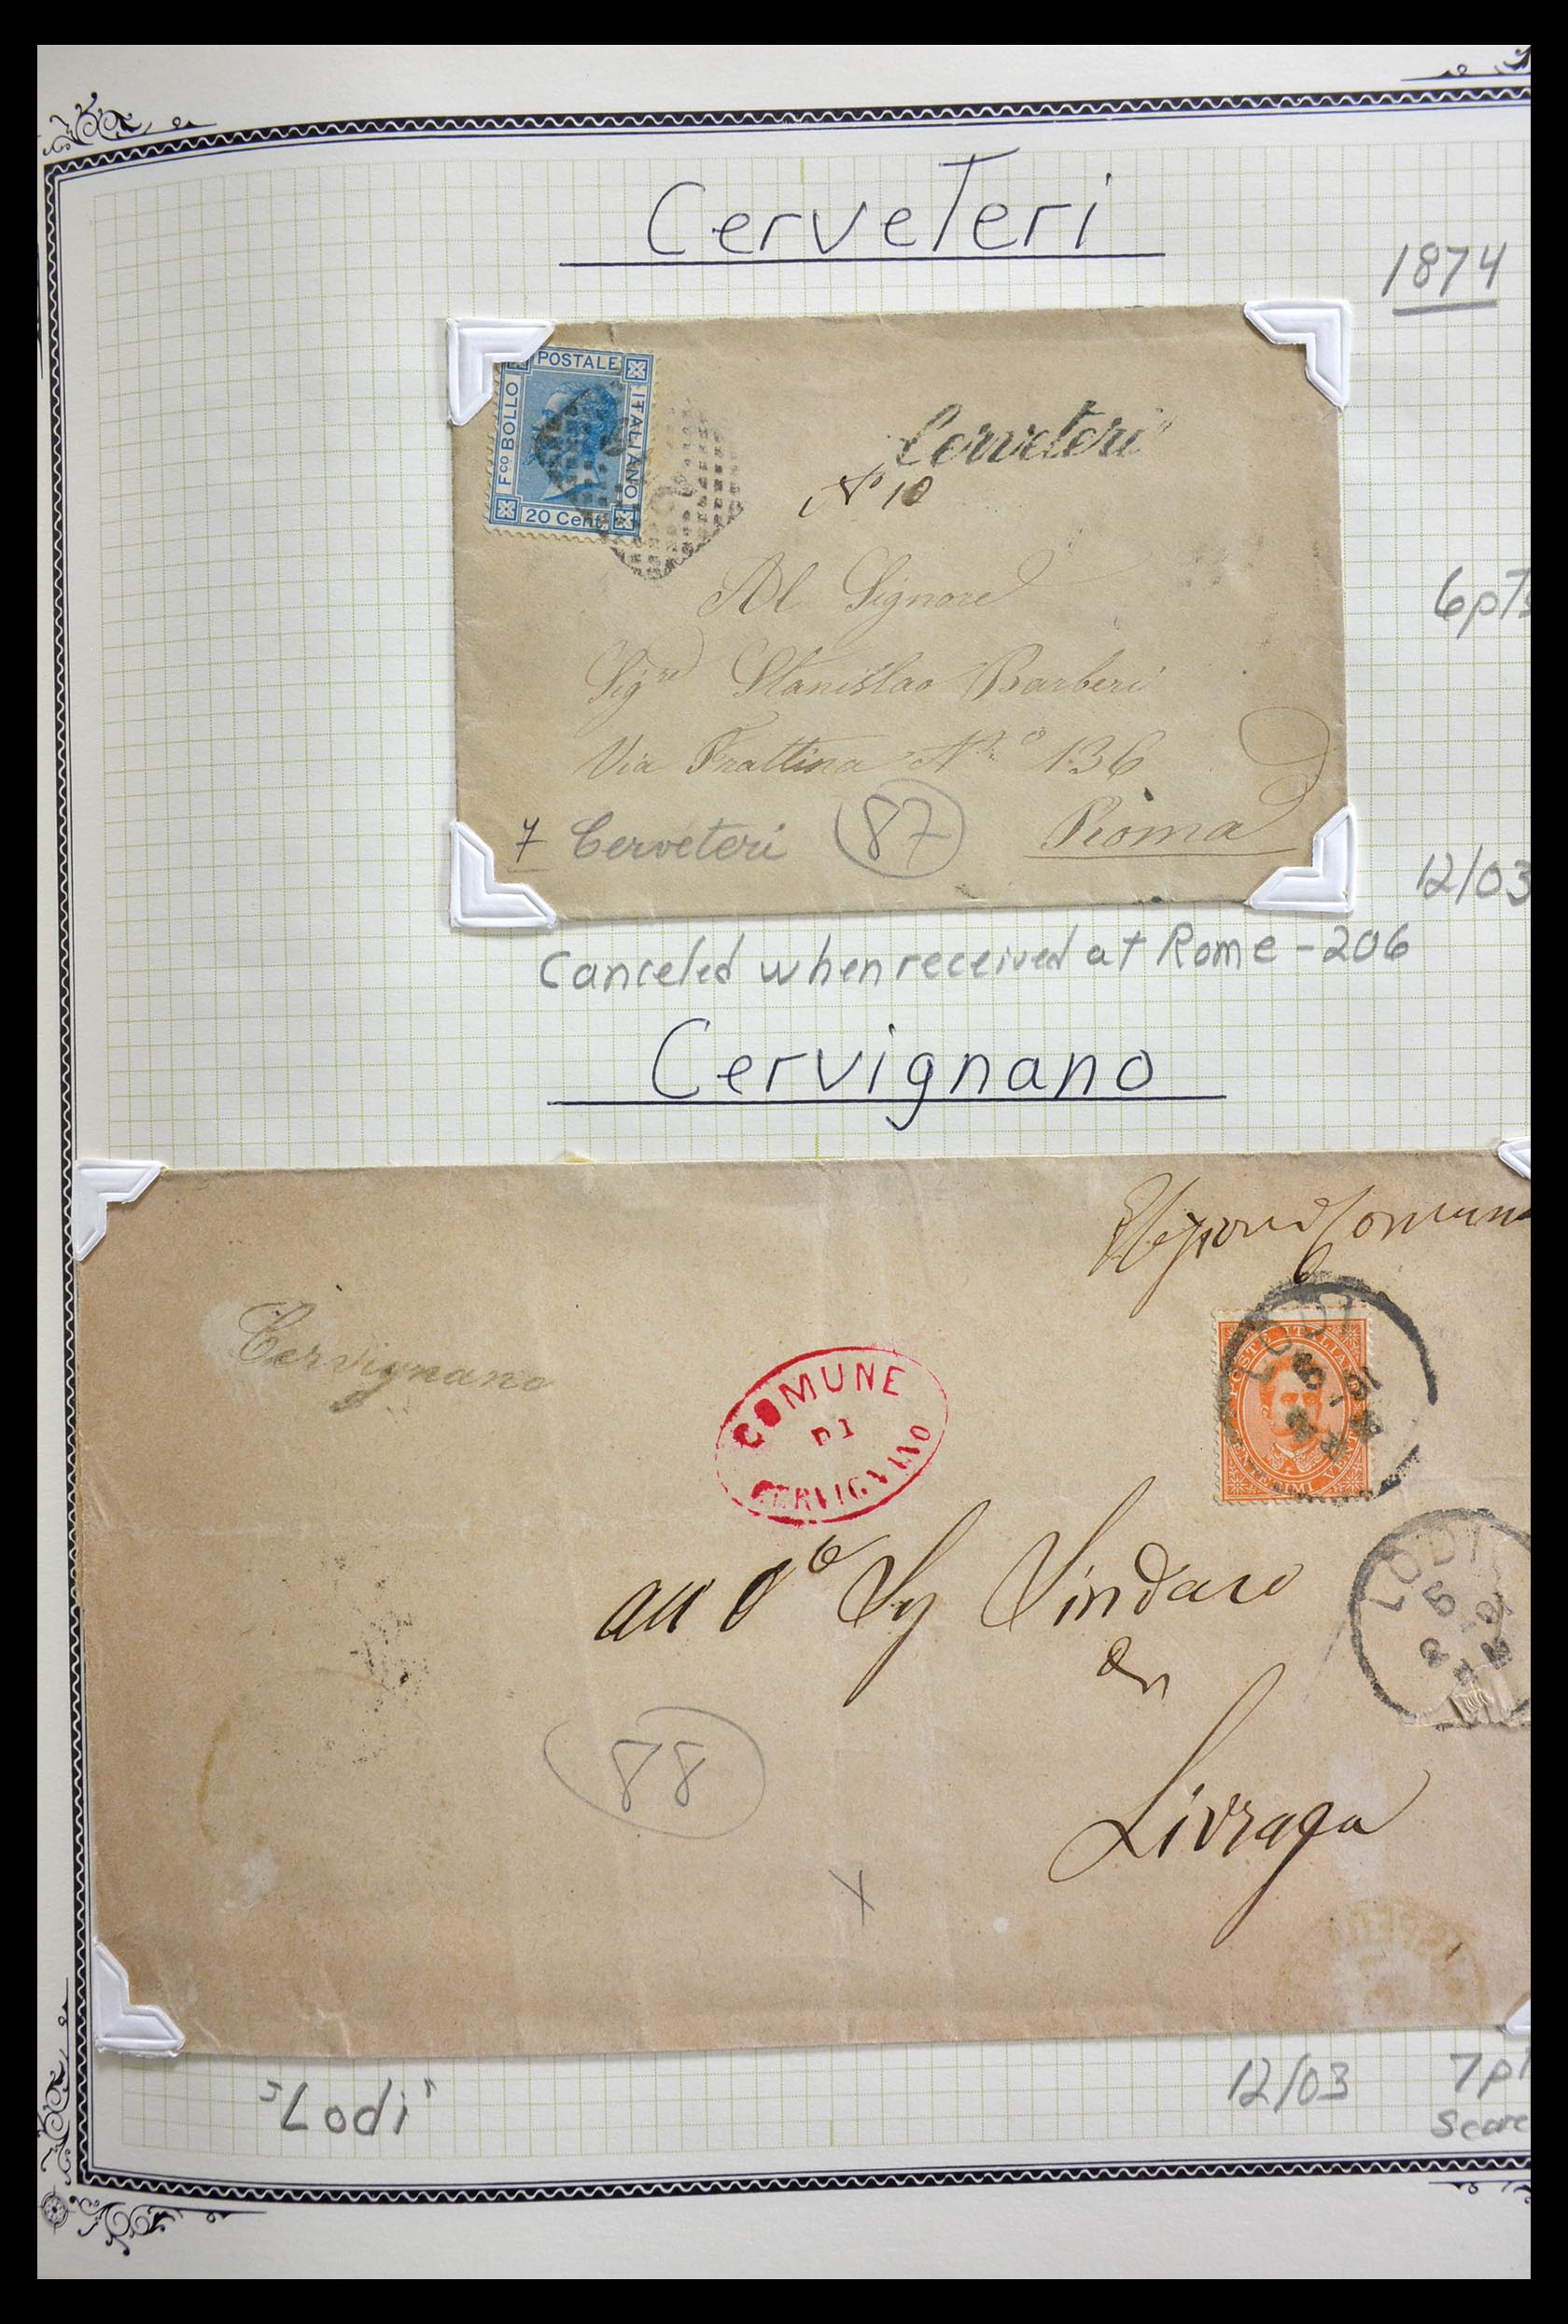 Cerveteri
1874
POSTALE
Fco BOLLO
ITALIANO
20 Cent.
Cerveteri
No 10
6pts
Al Signore
Sigre Stanislao Barberi
Via Frattina No 136
Roma
7 Cerveteri 87
12/03
Canceled when received at Rome - 206
Cervignano
Cervignano
COMUNE
DI
CERVIGNANO
POSTE ITALIANE
VENTI
LODI
5
91
LODI
5
91
Sindaco
di
Livraga
88
X
"Lodi"
12/03
7pt
Scarc